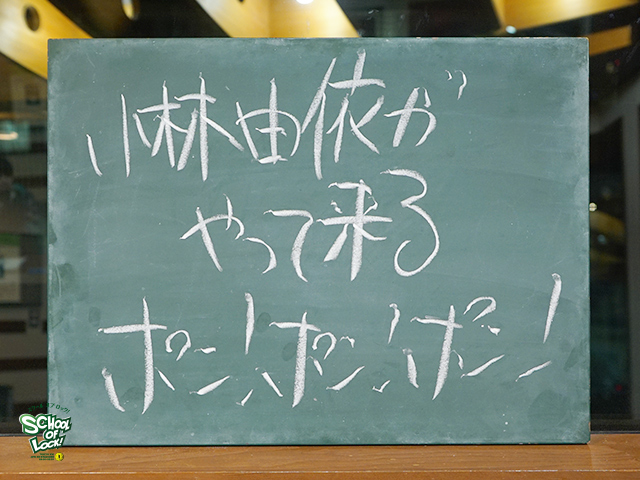 小林由依が
やって来る
ポン!ポン!ポン!
SCHOOL
OF
LOCK!